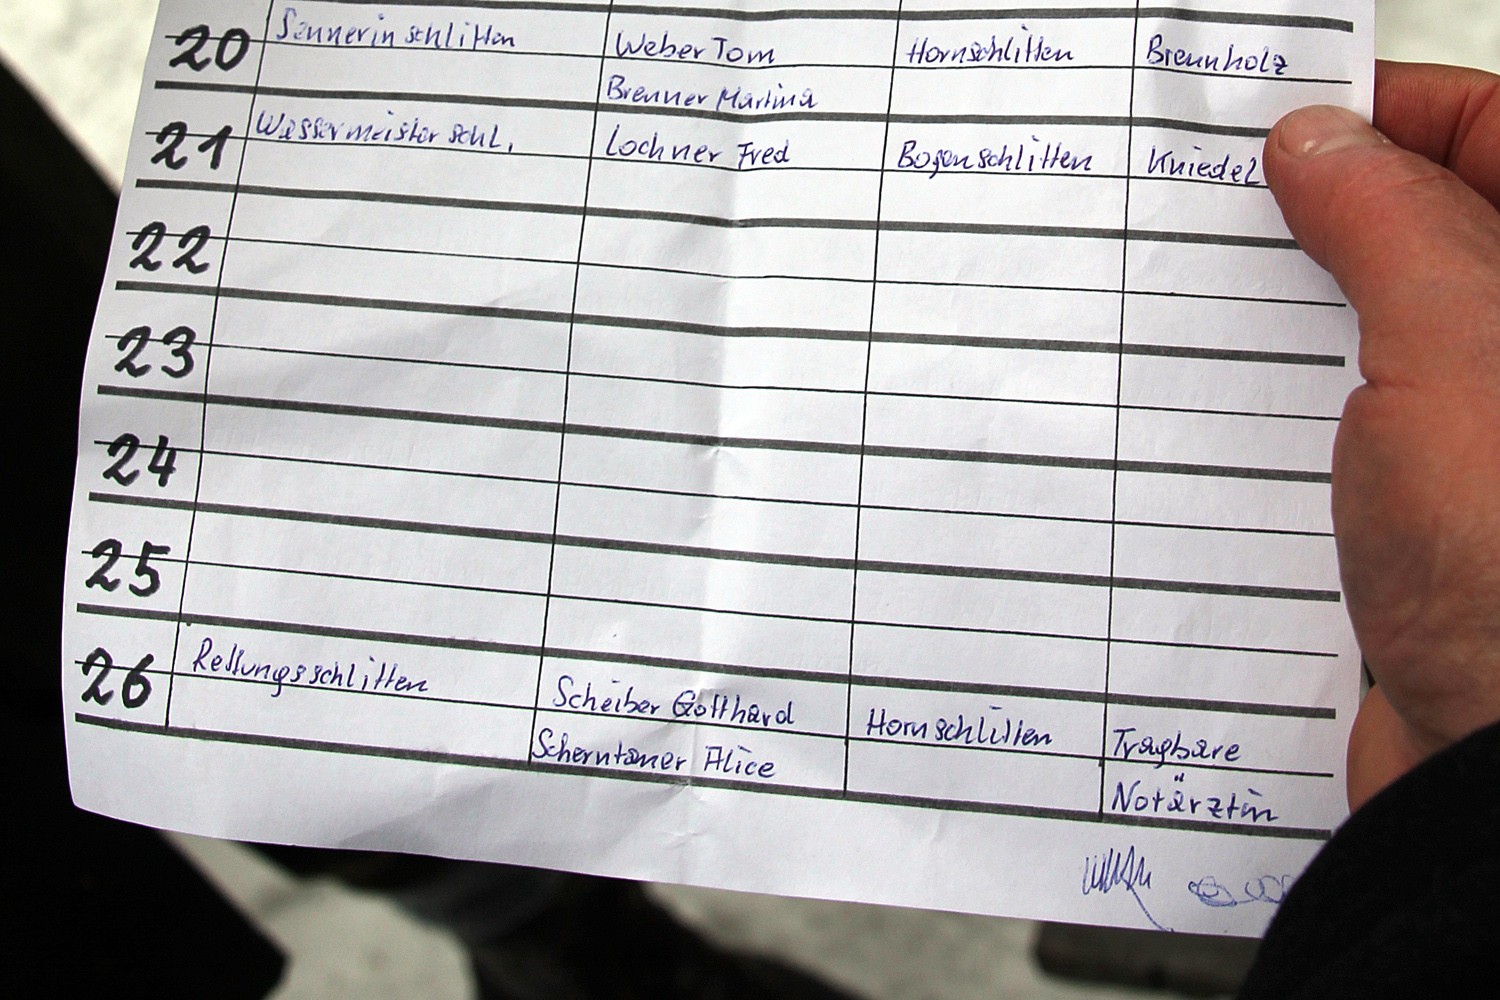 20 Sennerin schlitten Weber Tom Hornschlitten Brennholz
Brenner Martina
21 Wassermeister schl. Lochner Fred Bogenschlitten Kniedel
22
23
24
25
26 Rettungsschlitten Scheiber Gotthard Hornschlitten Tragbare
Scherntaner Alice Notärztin